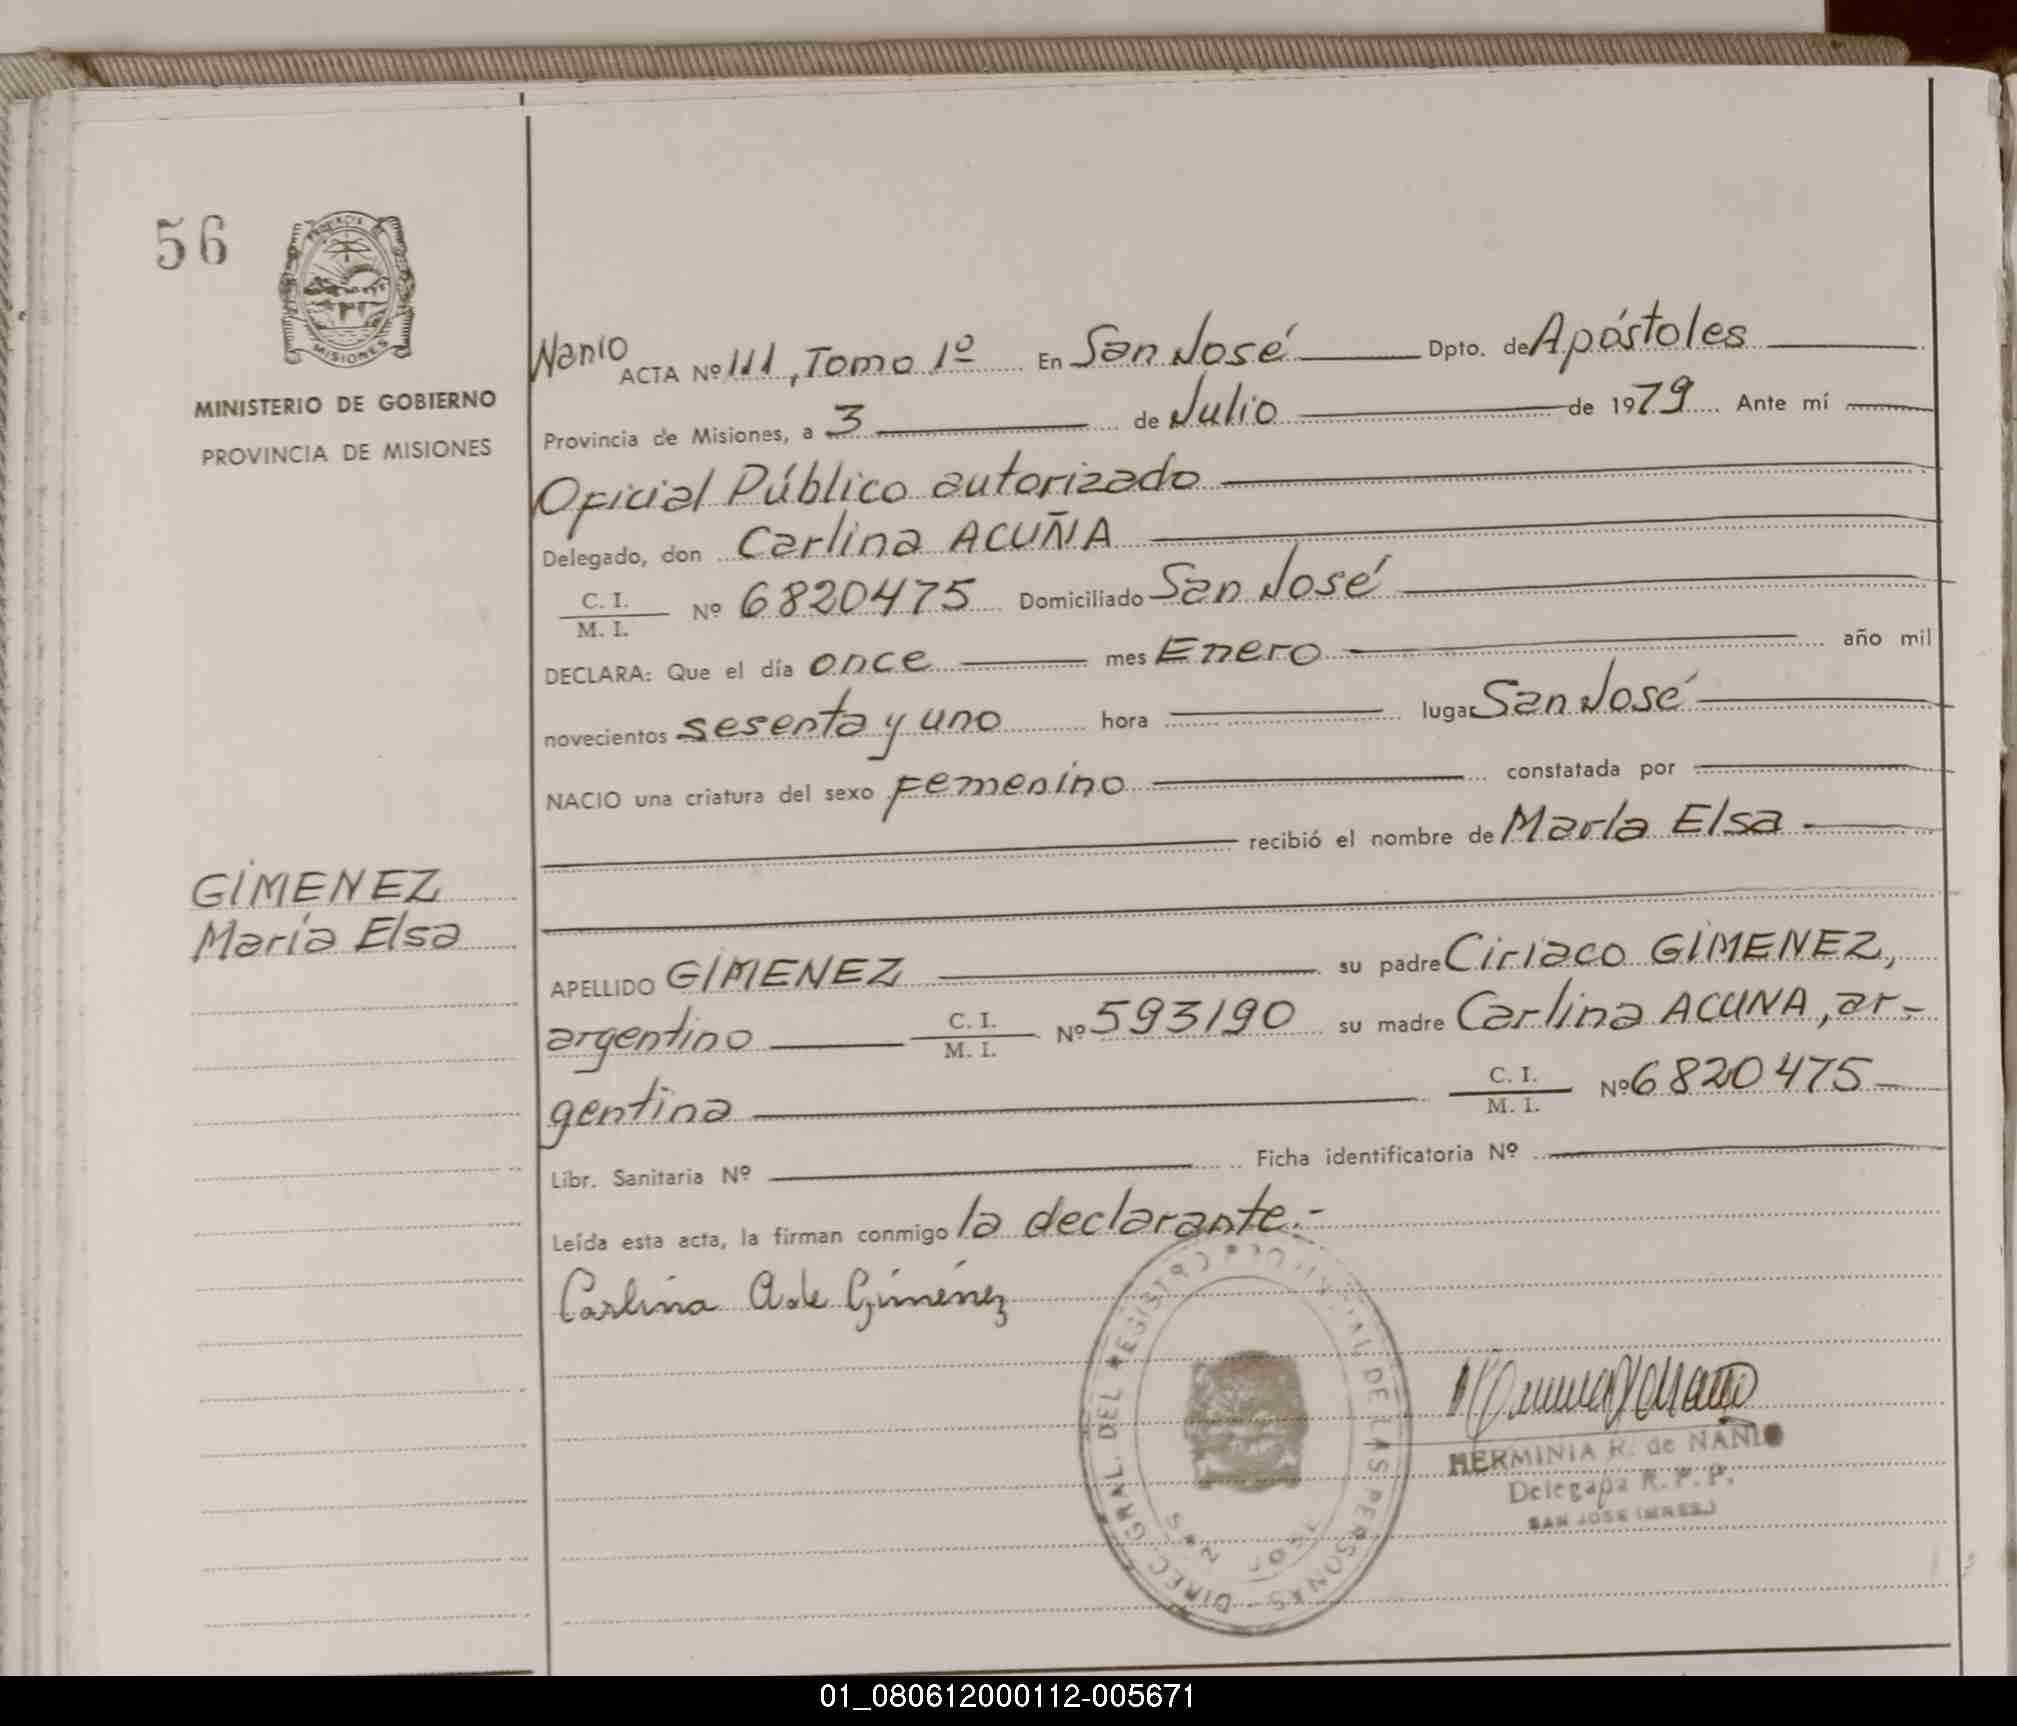 56
PROVINCIA
MISIONES
MINISTERIO DE GOBIERNO
PROVINCIA DE MISIONES
Nanio ACTA Nº 111, Tomo 1º En San José Dpto. de Apóstoles
Provincia de Misiones, a 3 de Julio de 1979 Ante mí
Oficial Público autorizado
Delegado, don Carlina ACUÑA
C. I.
M. I. Nº 6820475 Domiciliado San José
DECLARA: Que el día once mes Enero año mil
novecientos sesenta y uno hora lugar San José
NACIO una criatura del sexo Femenino constatada por
recibió el nombre de María Elsa
GIMENEZ
María Elsa
APELLIDO GIMENEZ su padre Ciriaco GIMENEZ,
argentino C. I.
M. I. Nº 593190 su madre Carlina ACUNA, ar-
gentina C. I.
M. I. Nº 6820475
Libr. Sanitaria Nº Ficha identificatoria Nº
Leída esta acta, la firman conmigo la declarante.-
Carlina A de Giménez
DIREC. GRAL. DEL REGISTRO PROVINCIAL DE LAS PERSONAS
SAN JOSE
HERMINIA R. de NANIO
Delegada R. P. P.
SAN JOSE (MNES.)
01_080612000112-005671